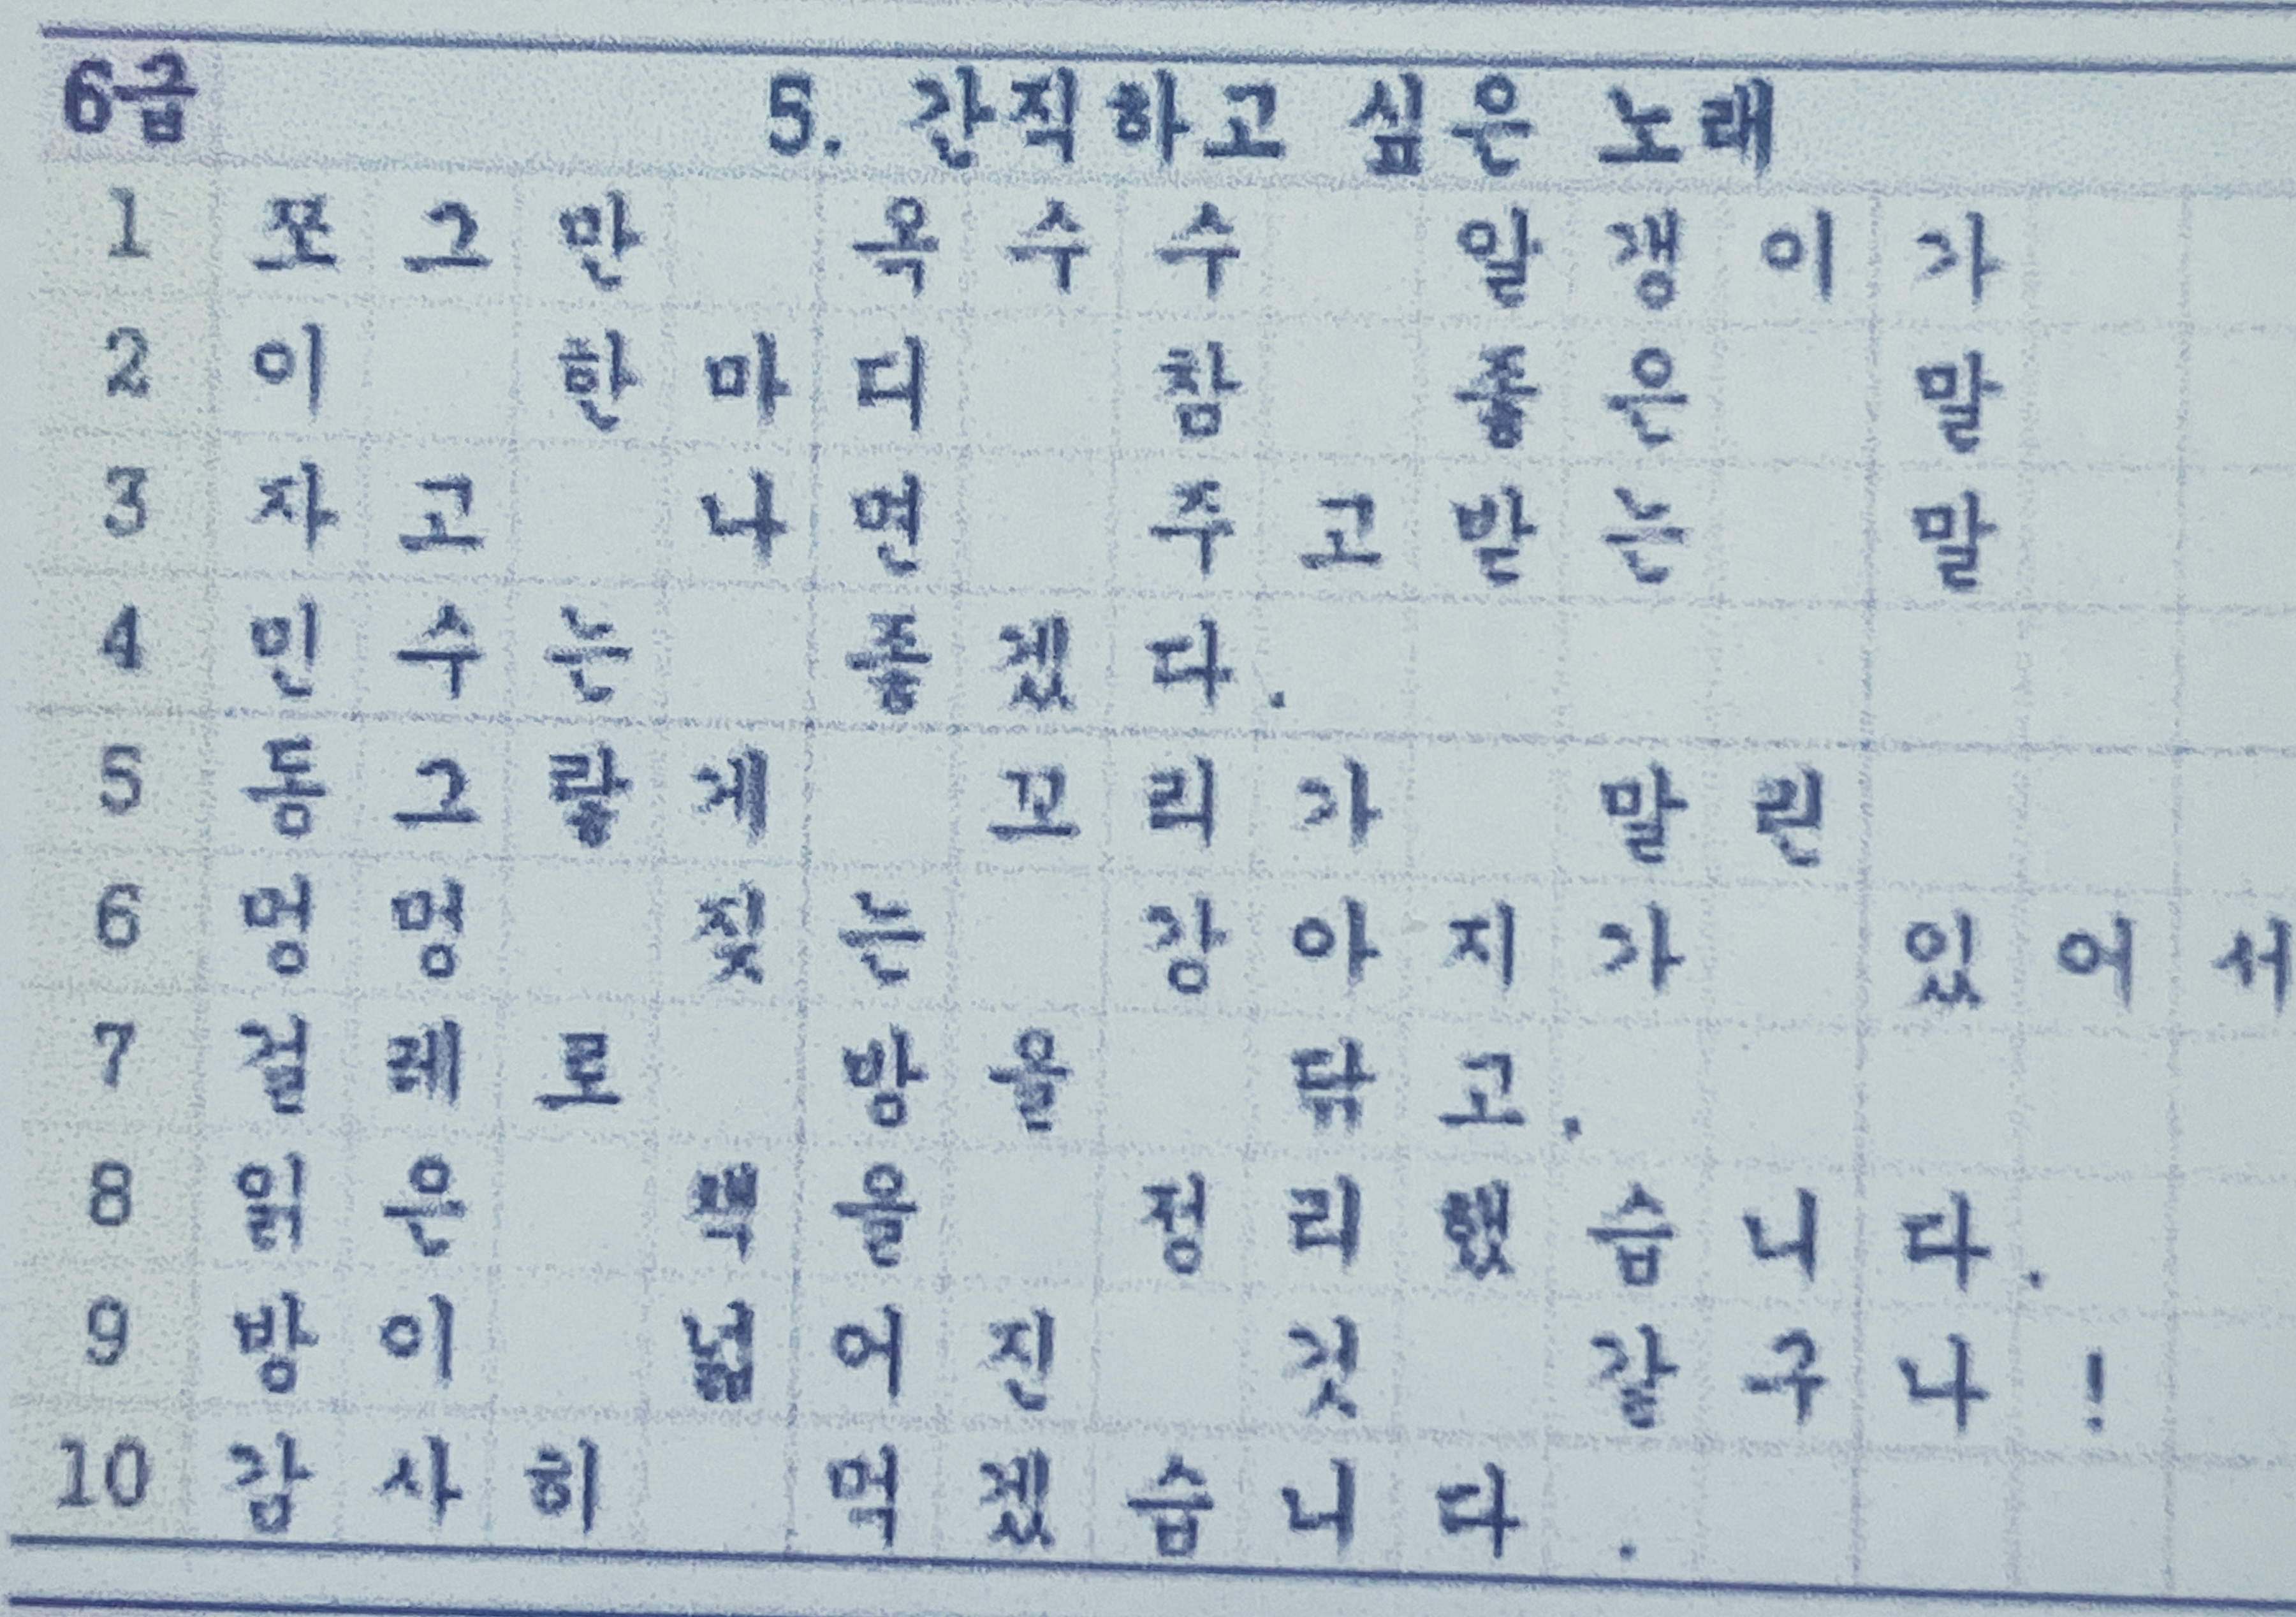 6급 5. 간직하고 싶은 노래
1 쪼그만 옥수수 알갱이가
2 이 한마디 참 좋은 말
3 자고 나면 주고받는 말
4 민수는 좋겠다.
5 동그랗게 꼬리가 말린
6 멍멍 짖는 강아지가 있어서
7 걸레로 방을 닦고.
8 읽은 책을 정리했습니다.
9 방이 넓어진 것 같구나!
10 감사히 먹겠습니다.